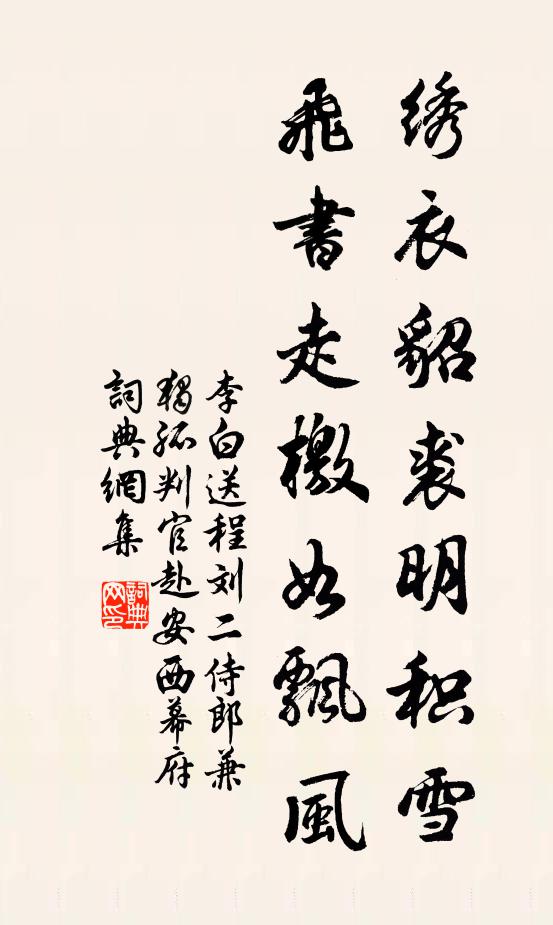 绣衣貂裘明积雪
飛書走檄如飄風
李白送程刘二侍郎兼
獨孤判官赴安西幕府
詞典網集
詞典网印